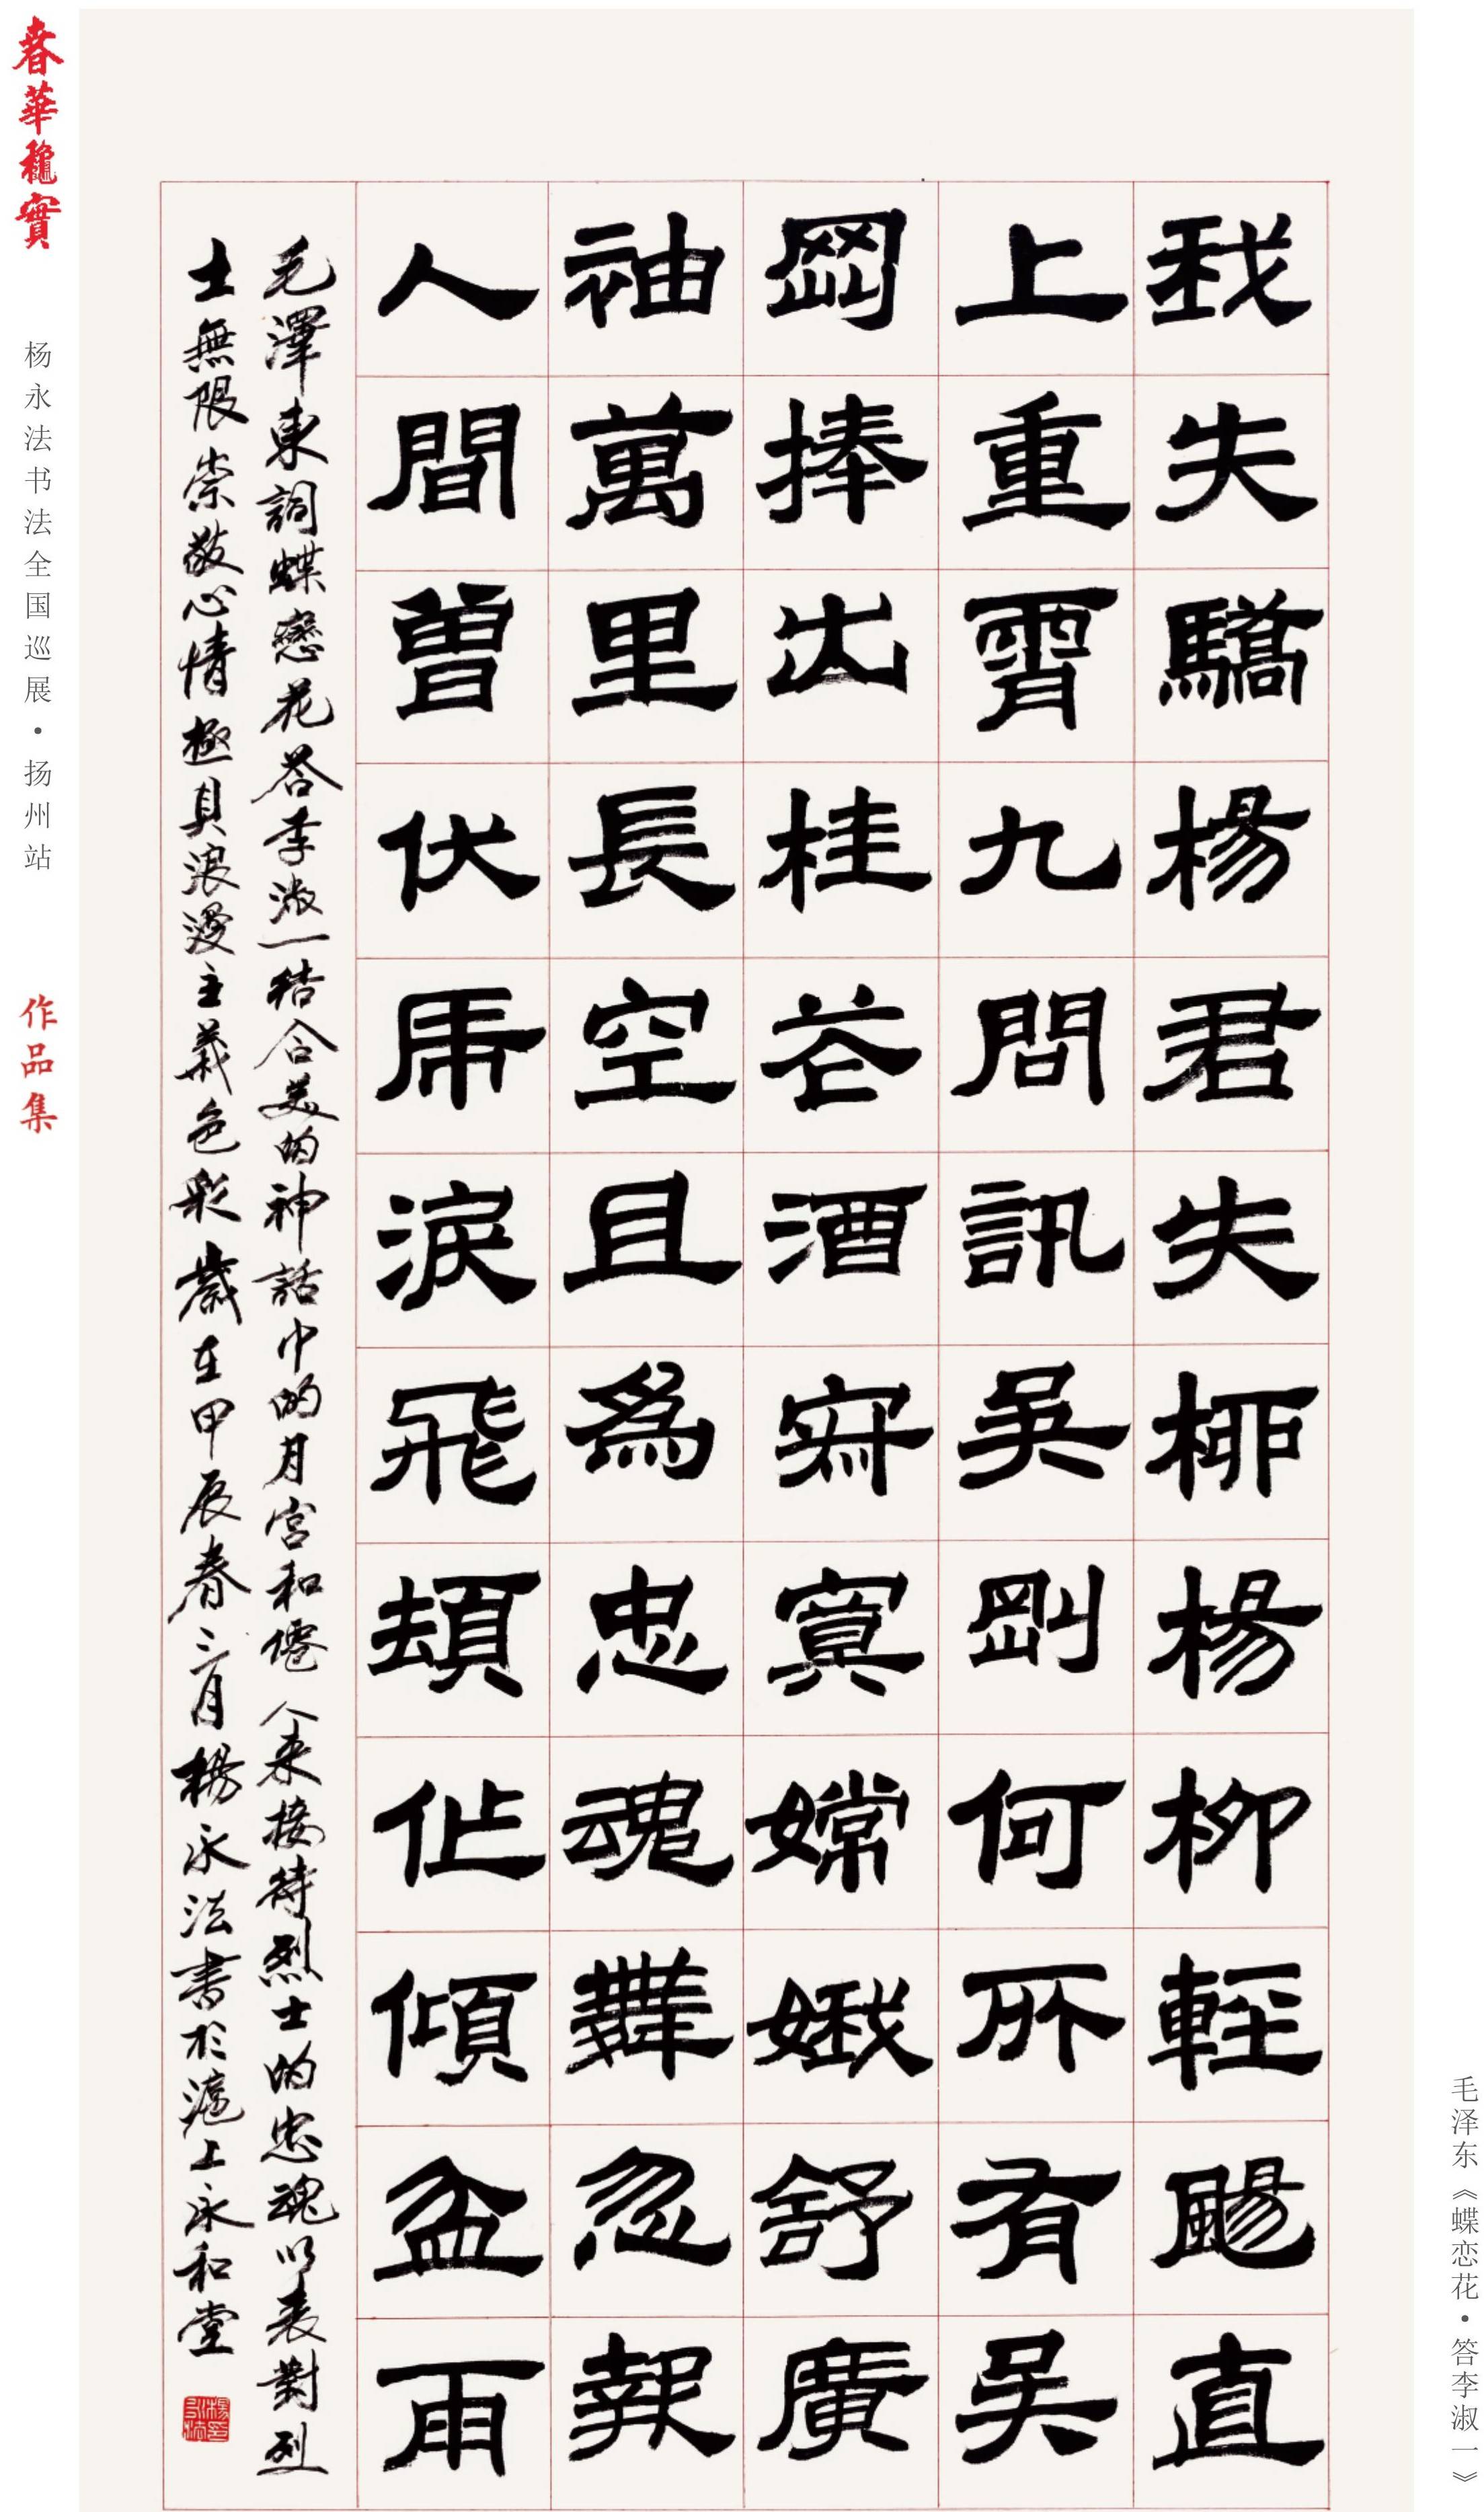 毛泽东《蝶恋花·答李淑一》
我失驕楊君失桺楊柳輕颺直
上重霄九問訊吳剛何所有吳
岡捧出桂花酒寂寞嫦娥舒廣
袖萬里長空且為忠魂舞忽報
人間曾伏虎淚飛頓作傾盆雨
毛澤東詞蝶戀花答李淑一結合美的神話中的月宮和僊人來接待烈士的忠魂以表對烈
士無限崇敬心情極具浪漫主義色彩歲在甲辰春三月楊永法書於滬上永和堂
春華穐實
杨永法书法全国巡展·扬州站
作品集